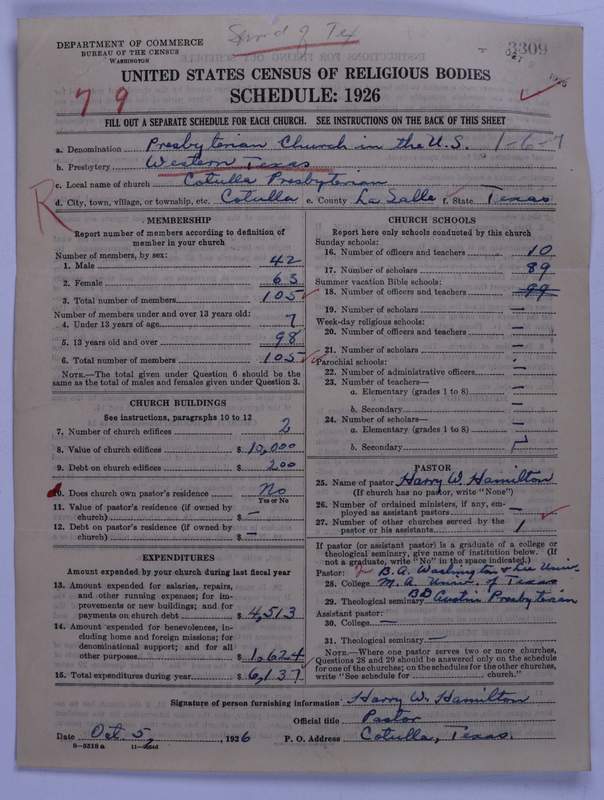 Synod of Tex
DEPARTMENT OF COMMERCE
BUREAU OF THE CENSUS
WASHINGTON
3309
OCT
1926
UNITED STATES CENSUS OF RELIGIOUS BODIES
SCHEDULE: 1926
79
FILL OUT A SEPARATE SCHEDULE FOR EACH CHURCH. SEE INSTRUCTIONS ON THE BACK OF THIS SHEET
a. Denomination Presbyterian Church in the U.S. 1-6-7
b. Presbytery Western Texas
c. Local name of church Cotulla Presbyterian
d. City, town, village, or township, etc. Cotulla e. County La Salle f. State Texas
R
MEMBERSHIP
Report number of members according to definition of
member in your church
Number of members, by sex:
1. Male 42
2. Female 63
3. Total number of members 105
Number of members under and over 13 years old:
4. Under 13 years of age 7
5. 13 years old and over 98
6. Total number of members 105
NOTE.—The total given under Question 6 should be the
same as the total of males and females given under Question 3.
CHURCH BUILDINGS
See instructions, paragraphs 10 to 12
7. Number of church edifices 2
8. Value of church edifices $ 10,000
9. Debt on church edifices $ 200
10. Does church own pastor's residence No
Yes or No
11. Value of pastor's residence (if owned by
church) $ —
12. Debt on pastor's residence (if owned by
church) $ —
EXPENDITURES
Amount expended by your church during last fiscal year
13. Amount expended for salaries, repairs,
and other running expenses; for im-
provements or new buildings; and for
payments on church debt $ 4,513
14. Amount expended for benevolences, in-
cluding home and foreign missions; for
denominational support; and for all
other purposes $ 1,624
15. Total expenditures during year $ 6,137
CHURCH SCHOOLS
Report here only schools conducted by this church
Sunday schools:
16. Number of officers and teachers 10
17. Number of scholars 89
Summer vacation Bible schools:
18. Number of officers and teachers 99
19. Number of scholars —
Week-day religious schools:
20. Number of officers and teachers —
21. Number of scholars —
Parochial schools:
22. Number of administrative officers
23. Number of teachers—
a. Elementary (grades 1 to 8) —
b. Secondary —
24. Number of scholars—
a. Elementary (grades 1 to 8) —
b. Secondary
PASTOR
25. Name of pastor Harry W. Hamilton
(If church has no pastor, write "None")
26. Number of ordained ministers, if any, em-
ployed as assistant pastors —
27. Number of other churches served by the
pastor or his assistants 1
If pastor (or assistant pastor) is a graduate of a college or
theological seminary, give name of institution below. (If
not a graduate, write "No" in the space indicated.)
Pastor: B.A. Washington & Lee Univ.
28. College M.A. Univ. of Texas
29. Theological seminary BD Austin Presbyterian
Assistant pastor:
30. College —
31. Theological seminary —
NOTE.—Where one pastor serves two or more churches,
Questions 28 and 29 should be answered only on the schedule
for one of the churches; on the schedules for the other churches,
write "See schedule for church."
Signature of person furnishing information Harry W. Hamilton
Official title Pastor
Date Oct 5, 1926 P. O. Address Cotulla, Texas.
8-5518 a